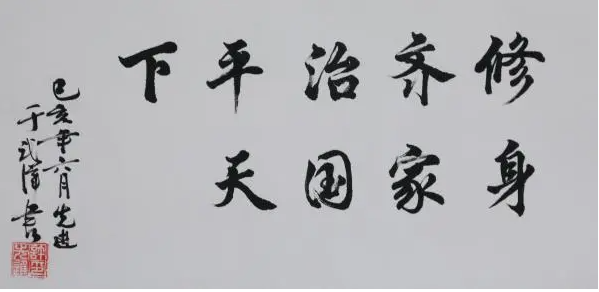 修身
齐家
治国
平天
下
己亥年六月先进
于武汉书